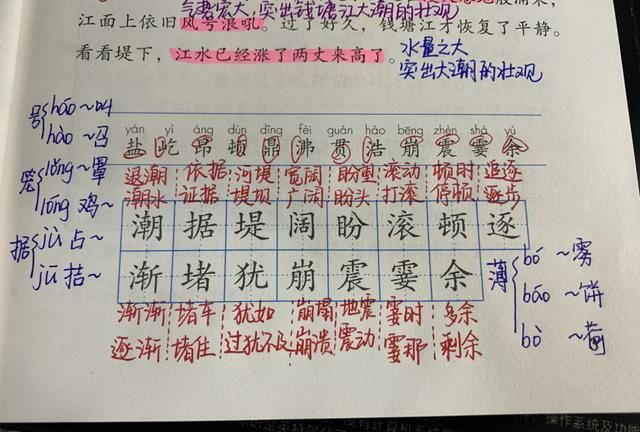 气势宏大,突出钱塘江大潮的壮观
江面上依旧风号浪吼。过了好久,钱塘江才恢复了平静。
看看堤下,江水已经涨了两丈来高了。
水量之大
突出大潮的壮观
号 háo ~叫
hào ~召
笼 lǒng ~罩
lóng 鸡~
据 jù 占~
jū 拮~
yán yì áng dùn dǐng fèi guàn hào bēng zhèn shà yú
盐 屹 昂 顿 鼎 沸 贯 浩 崩 震 霎 余
退潮 依据 河堤 宽阔 盼望 滚动 顿时 追逐
潮水 证据 堤坝 广阔 盼头 打滚 停顿 逐步
潮 据 堤 阔 盼 滚 顿 逐
渐 堵 犹 崩 震 霎 余
渐渐 堵车 犹如 崩塌 地震 霎时 多余
逐渐 堵住 过犹不及 崩溃 震动 霎那 剩余
薄 bó ~雾
báo ~饼
bò ~荷